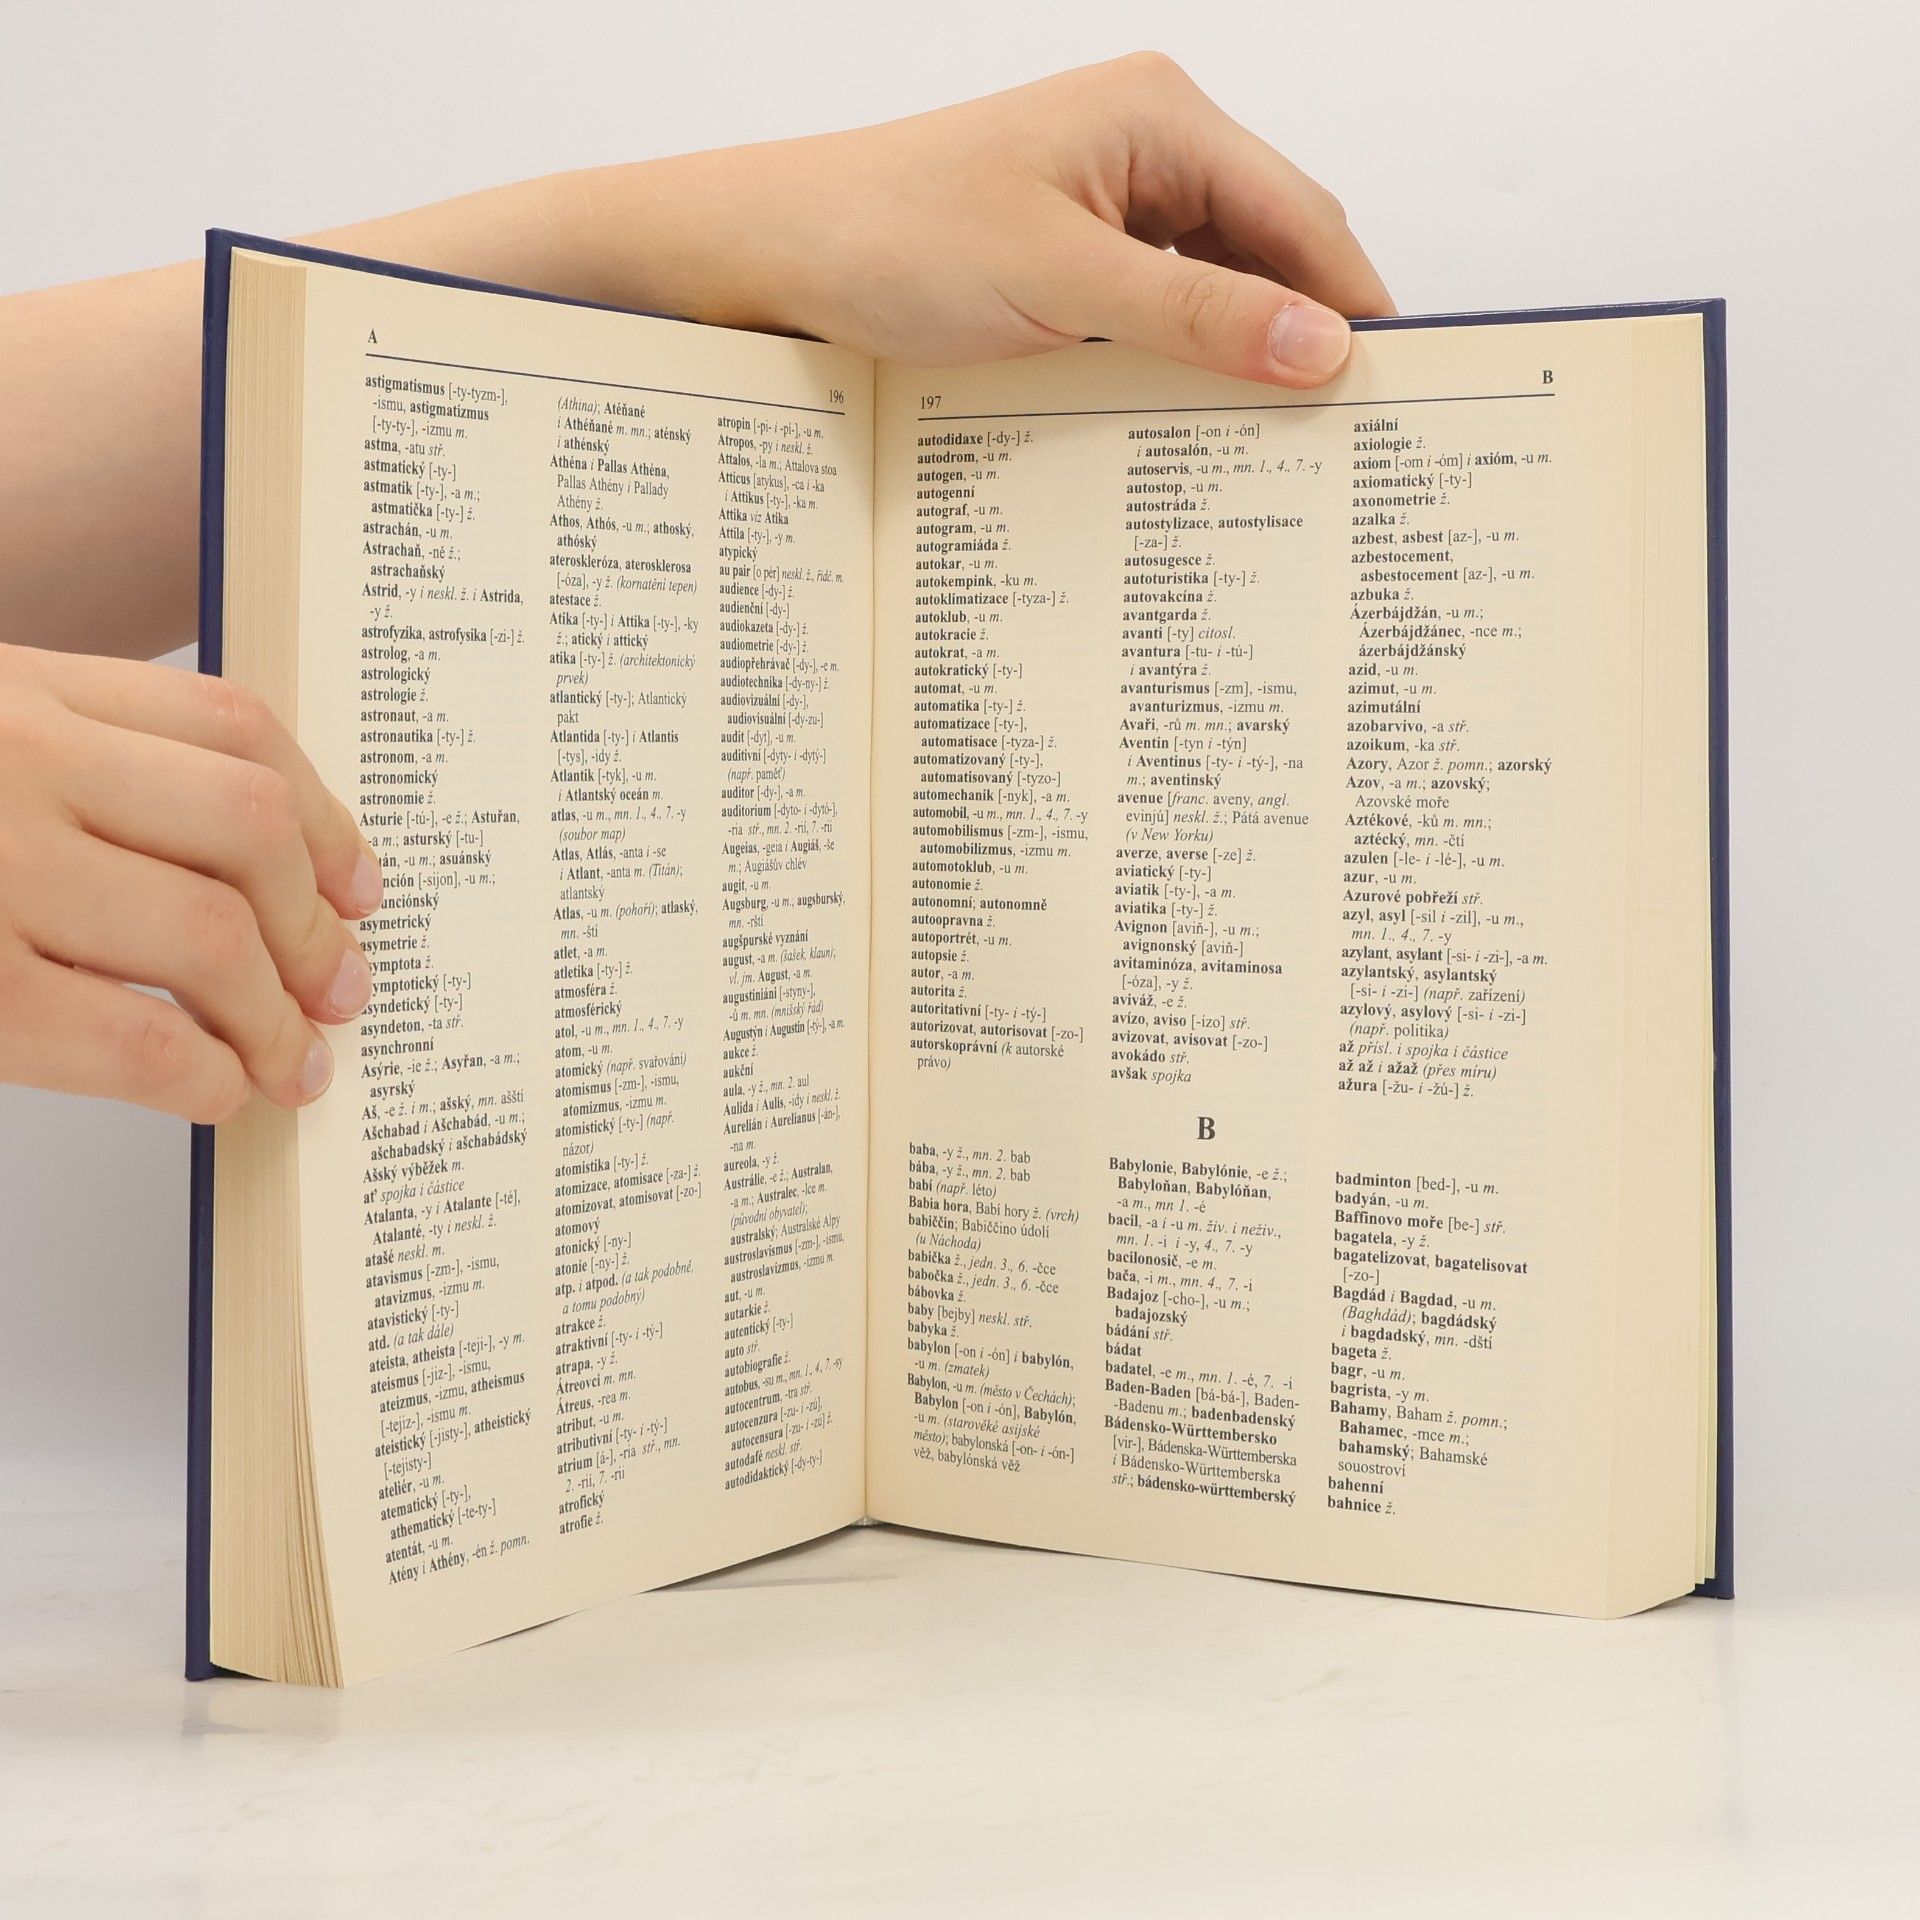 A
196
astigmatismus [-ty-tyzm-],
-ismu, astigmatizmus
[-ty-ty-], -izmu m.
astma, -atu stř.
astmatický [-ty-]
astmatik [-ty-], -a m.;
astmatička [-ty-] ž.
astrachán, -u m.
Astrachaň, -ně ž.;
astrachaňský
Astrid, -y i neskl. ž. i Astrida,
-y ž.
astrofyzika, astrofysika [-zi-] ž.
astrolog, -a m.
astrologický
astrologie ž.
astronaut, -a m.
astronautika [-ty-] ž.
astronom, -a m.
astronomický
astronomie ž.
Asturie [-tú-], -e ž.; Asturan,
-a m.; asturský [-tu-]
-u m.; asuánský
[-sijon], -u m.;
asymetrický
asymetrie ž.
ž.
[-ty-]
asyndetický [-ty-]
asyndeton, -ta stř.
asynchronní
Asýrie, -ie ž.; Asyřan, -a m.;
asyrský
Aš, -e ž. i m.; ašský, mn. ašští
Ašchabad i Ašchabád, -u m.;
ašchabadský i ašchabádský
Ašský výběžek m.
ať spojka i částice
Atalanta, -y i Atalante [-té],
Atalanté, -ty i neskl. ž.
atašé neskl. m.
atavismus [-zm-], -ismu,
atavizmus, -izmu m.
atavistický [-ty-]
atd. (a tak dále)
ateista, atheista [-teji-], -y m.
ateismus [-jiz-], -ismu,
ateizmus, -izmu, atheismus
[-tejiz-], -ismu m.
ateistický [-jisty-], atheistický
[-tejisty-]
ateliér, -u m.
atematický [-ty-],
athematický [-te-ty-]
atentát, -u m.
Atény i Athény, -én ž. pomn.
(Athina); Atéňané
i Athéňané m. mn.; aténský
i athénský
Athéna i Pallas Athéna,
Pallas Athény i Pallady
Athény ž.
Athos, Athós, -u m.; athoský,
athóský
ateroskleróza, aterosklerosa
[-óza], -y ž. (kornatění tepen)
atestace ž.
Atika [-ty-] i Attika [-ty-], -ky
ž.; atický i attický
atika [-ty-] ž. (architektonický
prvek)
atlantický [-ty-]; Atlantický
pakt
Atlantida [-ty-] i Atlantis
[-tys], -idy ž.
Atlantik [-tyk], -u m.
i Atlantský oceán m.
atlas, -u m., mn. 1., 4., 7. -y
(soubor map)
Atlas, Atlás, -anta i -se
i Atlant, -anta m. (Titán);
atlantský
Atlas, -u m. (pohoří); atlaský,
mn. -ští
atlet, -a m.
atletika [-ty-] ž.
atmosféra ž.
atmosférický
atol, -u m., mn. 1., 4., 7. -y
atom, -u m.
atomický (např. svařování)
atomismus [-zm-], -ismu,
atomizmus, -izmu m.
atomistický [-ty-] (např.
názor)
atomistika [-ty-] ž.
atomizace, atomisace [-za-] ž.
atomizovat, atomisovat [-zo-]
atomový
atonický [-ny-]
atonie [-ny-] ž.
atp. i atpod. (a tak podobně,
a tomu podobný)
atrakce ž.
atraktivní [-ty- i -tý-]
atrapa, -y ž.
Átreovci m. mn.
Átreus, -rea m.
atribut, -u m.
atributivní [-ty- i -tý-]
atrium [á-], -ria stř., mn.
2. -rií, 7. -rii
atrofický
atrofie ž.
atropin [-pi- i -pí-], -u m.
Atropos, -py i neskl. ž.
Attalos, -la m.; Attalova stoa
Atticus [atykus], -ca i -ka
i Attikus [-ty-], -ka m.
Attika viz Atika
Attila [-ty-], -y m.
atypický
au pair [o pér] neskl. ž., řidč. m.
audience [-dy-] ž.
audienční [-dy-]
audiokazeta [-dy-] ž.
audiometrie [-dy-] ž.
audiopřehrávač [-dy-], -e m.
audiotechnika [-dy-ny-] ž.
audiovizuální [-dy-],
audiovisuální [-dy-zu-]
audit [-dyt], -u m.
auditivní [-dyty- i -dytý-]
(např. paměť)
auditor [-dy-], -a m.
auditorium [-dyto- i -dytó-],
-ria stř., mn. 2. -rií, 7. -rii
Augeias, -geia i Augiáš, -še
m.; Augiášův chlév
augit, -u m.
Augsburg, -u m.; augsburský,
mn. -rští
augšpurské vyznání
august, -a m. (šašek, klaun);
vl. jm. August, -a m.
augustiniáni [-styny-],
-ů m. mn. (mnišský řád)
Augustýn i Augustin [-tý-], -a m.
aukce ž.
aukční
aula, -y ž., mn. 2. aul
Aulida i Aulis, -idy i neskl. ž.
Aurelián i Aurelianus [-án-],
-na m.
aureola, -y ž.
Austrálie, -e ž.; Australan,
-a m.; Australec, -lce m.
(původní obyvatel);
australský; Australské Alpy
austroslavismus [-zm-], -ismu,
austroslavizmus, -izmu m.
aut, -u m.
autarkie ž.
autentický [-ty-]
auto stř.
autobiografie ž.
autobus, -su m., mn. 1., 4., 7. -sy
autocentrum, -tra stř.
autocenzura [-zu- i -zú],
autocensura [-zu- i -zú] ž.
autodafé neskl. stř.
autodidaktický [-dy-ty-]
197
B
autodidaxe [-dy-] ž.
autodrom, -u m.
autogen, -u m.
autogenní
autograf, -u m.
autogram, -u m.
autogramiáda ž.
autokar, -u m.
autokempink, -ku m.
autoklimatizace [-tyza-] ž.
autoklub, -u m.
autokracie ž.
autokrat, -a m.
autokratický [-ty-]
automat, -u m.
automatika [-ty-] ž.
automatizace [-ty-],
automatisace [-tyza-] ž.
automatizovaný [-ty-],
automatisovaný [-tyzo-]
automechanik [-nyk], -a m.
automobil, -u m., mn. 1., 4., 7. -y
automobilismus [-zm-], -ismu,
automobilizmus, -izmu m.
automotoklub, -u m.
autonomie ž.
autonomní; autonomně
autoopravna ž.
autoportrét, -u m.
autopsie ž.
autor, -a m.
autorita ž.
autoritativní [-ty- i -tý-]
autorizovat, autorisovat [-zo-]
autorskoprávní (k autorské
právo)
autosalon [-on i -ón]
i autosalón, -u m.
autoservis, -u m., mn. 1., 4., 7. -y
autostop, -u m.
autostráda ž.
autostylizace, autostylisace
[-za-] ž.
autosugesce ž.
autoturistika [-ty-] ž.
autovakcína ž.
avantgarda ž.
avanti [-ty] citosl.
avantura [-tu- i -tú-]
i avantýra ž.
avanturismus [-zm], -ismu,
avanturizmus, -izmu m.
Avaři, -rů m. mn.; avarský
Aventin [-tyn i -týn]
i Aventinus [-ty- i -tý-], -na
m.; aventinský
avenue [franc. aveny, angl.
evinjú] neskl. ž.; Pátá avenue
(v New Yorku)
averze, averse [-ze] ž.
aviatický [-ty-]
aviatik [-ty-], -a m.
aviatika [-ty-] ž.
Avignon [aviň-], -u m.;
avignonský [aviň-]
avitaminóza, avitaminosa
[-óza], -y ž.
aviváž, -e ž.
avízo, aviso [-ízo] stř.
avizovat, avisovat [-zo-]
avokádo stř.
avšak spojka
axiální
axiologie ž.
axiom [-om i -óm] i axióm, -u m.
axiomatický [-ty-]
axonometrie ž.
azalka ž.
azbest, asbest [az-], -u m.
azbestocement,
asbestocement [az-], -u m.
azbuka ž.
Ázerbájdžán, -u m.;
Ázerbájdžánec, -nce m.;
ázerbájdžánský
azid, -u m.
azimut, -u m.
azimutální
azobarvivo, -a stř.
azoikum, -ka stř.
Azory, Azor ž. pomn.; azorský
Azov, -a m.; azovský;
Azovské moře
Aztékové, -ků m. mn.;
aztécký, mn. -čtí
azulen [-le- i -lé-], -u m.
azur, -u m.
Azurové pobřeží stř.
azyl, asyl [-sil i -zil], -u m.,
mn. 1., 4., 7. -y
azylant, asylant [-si- i -zi-], -a m.
azylantský, asylantský
[-si- i -zi-] (např. zařízení)
azylový, asylový [-si- i -zi-]
(např. politika)
až přísl. i spojka i částice
až až i ažaž (přes míru)
ažura [-žu- i -žú-] ž.
B
baba, -y ž., mn. 2. bab
bába, -y ž., mn. 2. bab
babí (např. léto)
Babia hora, Babí hory ž. (vrch)
babiččin; Babiččino údolí
(u Náchoda)
babička ž., jedn. 3., 6. -čce
babočka ž., jedn. 3., 6. -čce
bábovka ž.
baby [bejby] neskl. stř.
babyka ž.
babylon [-on i -ón] i babylón,
-u m. (zmatek)
Babylon, -u m. (město v Čechách);
Babylon [-on i -ón], Babylón,
-u m. (starověké asijské
město); babylonská [-on- i -ón-]
věž, babylónská věž
Babylonie, Babylónie, -e ž.;
Babyloňan, Babylóňan,
-a m., mn 1. -é
bacil, -a i -u m. živ. i neživ.,
mn. 1. -i i -y, 4., 7. -y
bacilonosič, -e m.
bača, -i m., mn. 4., 7. -i
Badajoz [-cho-], -u m.;
badajozský
bádání stř.
bádat
badatel, -e m., mn. 1. -é, 7. -i
Baden-Baden [bá-bá-], Baden-
-Badenu m.; badenbadenský
Bádensko-Württembersko
[vir-], Bádenska-Württemberska
i Bádensko-Württemberska
stř.; bádensko-württemberský
badminton [bed-], -u m.
badyán, -u m.
Baffinovo moře [be-] stř.
bagatela, -y ž.
bagatelizovat, bagatelisovat
[-zo-]
Bagdád i Bagdad, -u m.
(Baghdád); bagdádský
i bagdadský, mn. -dští
bageta ž.
bagr, -u m.
bagrista, -y m.
Bahamy, Baham ž. pomn.;
Bahamec, -mce m.;
bahamský; Bahamské
souostroví
bahenní
bahnice ž.